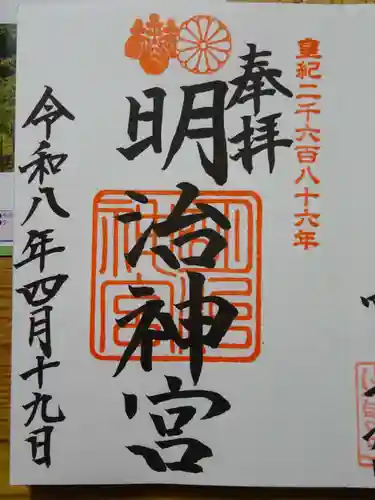 皇紀二千六百八十六年
奉拝
明治神宮
令和八年四月十九日
明治神宮